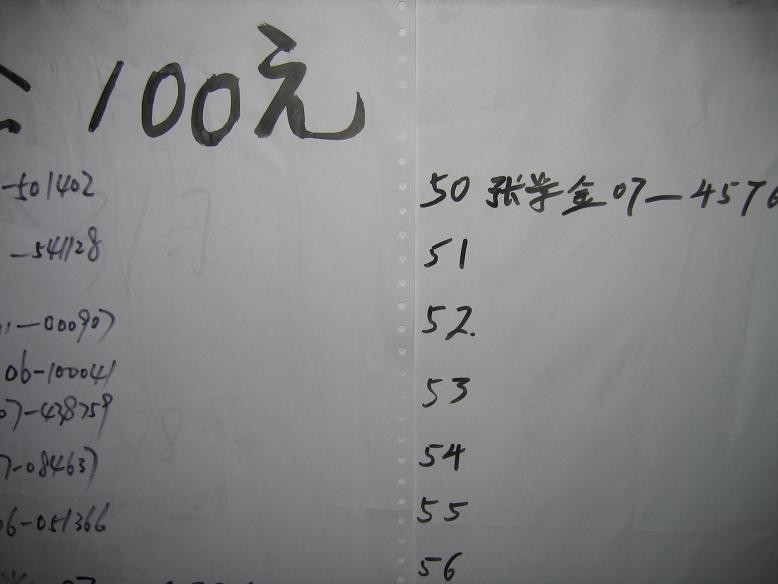 100元
-501402
-541128
11-000907
06-100041
07-438759
7-084637
06-051366
07
50 张学金07-4576
51
52.
53
54
55
56